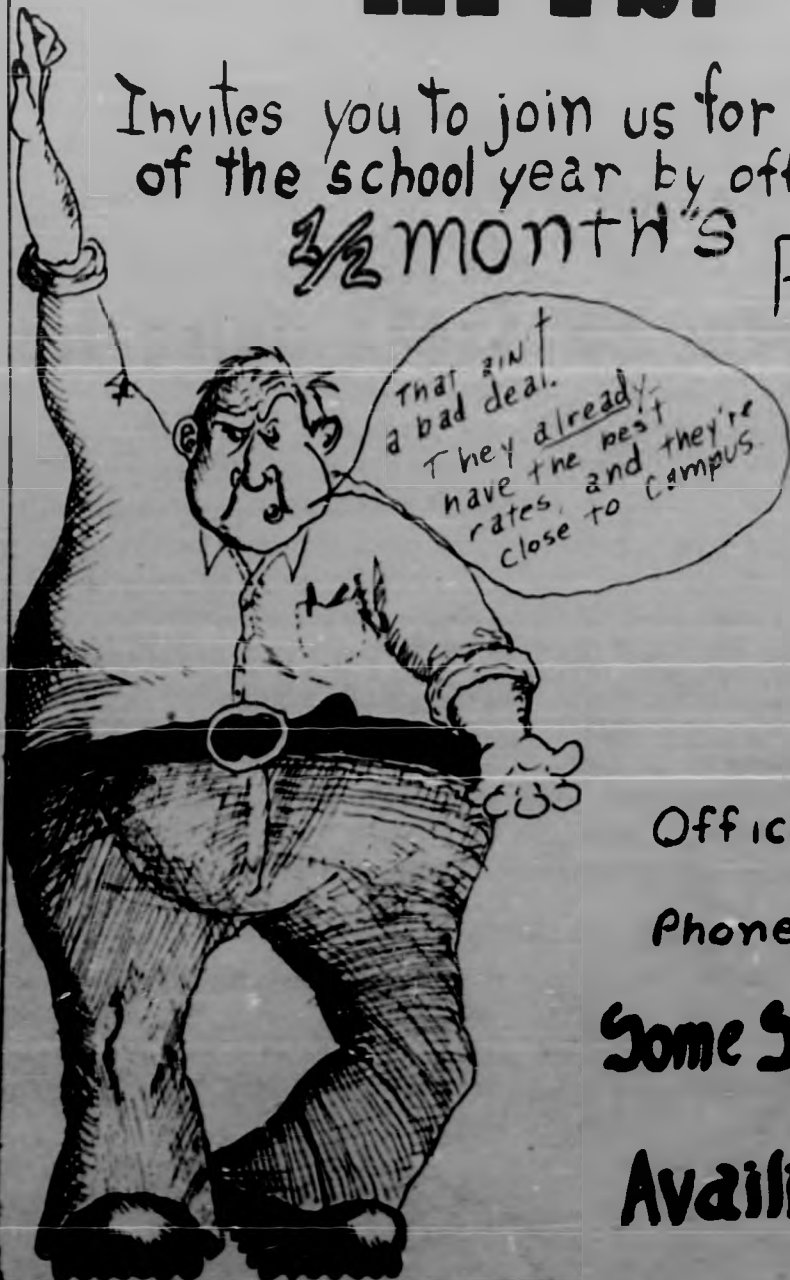 Invites you to join us for
of the school year by off
1/2 month's
That ain't
a bad deal.
They already
have the best
rates, and they're
close to campus.
Offic
Phone
Some S
Avail